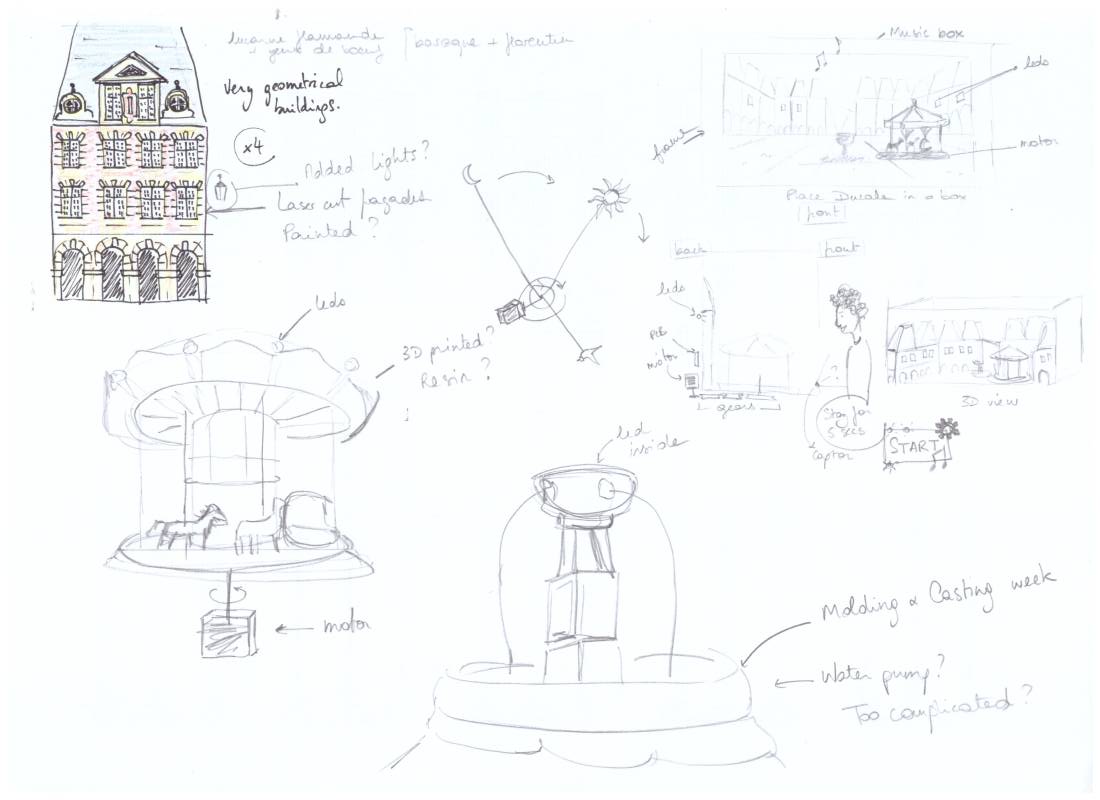 Lucarne flamande
+ yeux de boeuf
baroque + florentin
Very geometrical
buildings.
x4
Added lights?
Laser cut façades
Painted?
leds
3D printed?
Resin?
motor
frame
Music box
leds
motor
Place Ducale in a box
front
back
front
leds
PCB
motor
gears
?
Stay for
5 secs
Captor
3D view
START
led
inside
Molding & Casting week
Water pump?
Too complicated?